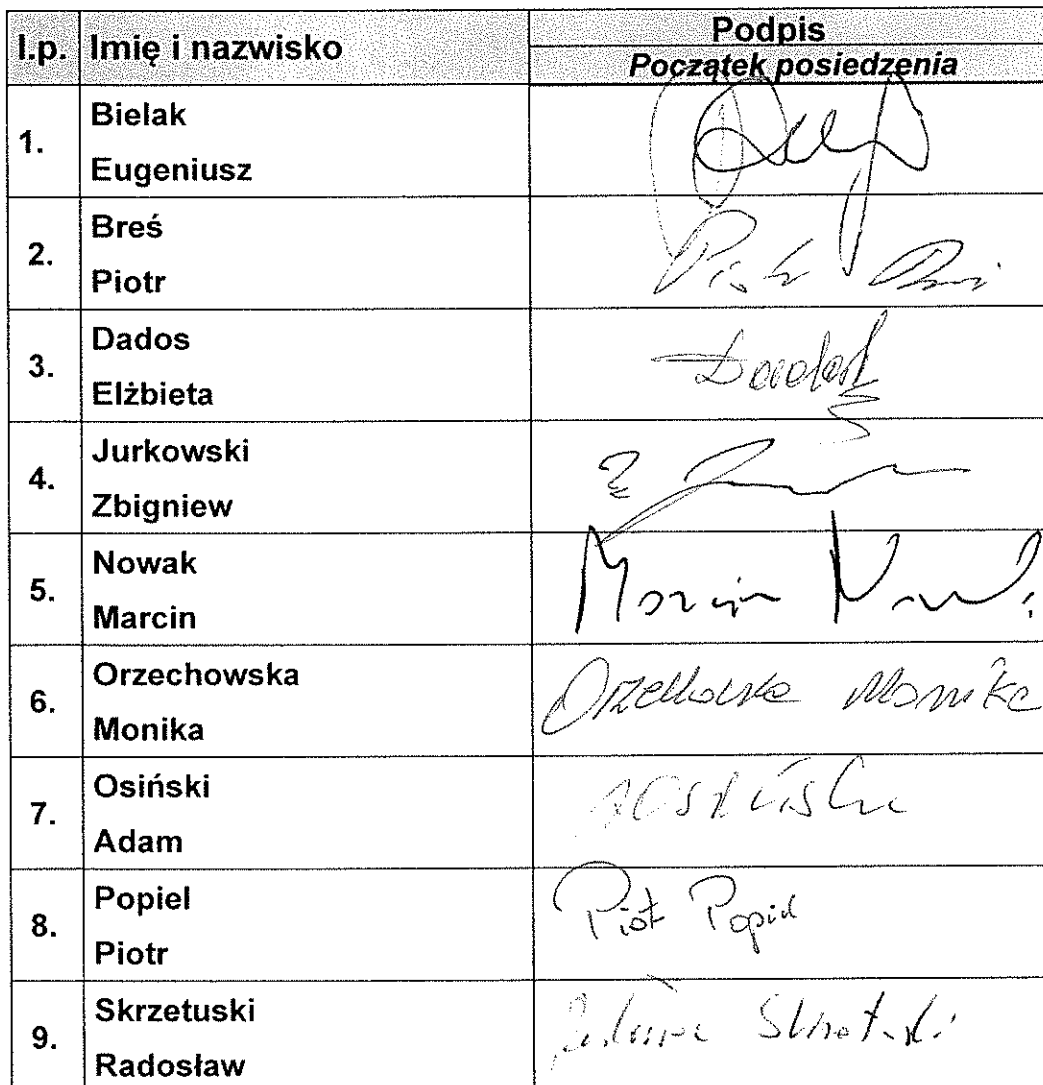 l.p. Imię i nazwisko Podpis
Początek posiedzenia
1. Bielak
Eugeniusz
2. Breś
Piotr
Piotr
3. Dados
Elżbieta
4. Jurkowski
Zbigniew
5. Nowak
Marcin
Marcin Nowak
6. Orzechowska
Monika
Orzechowska Monika
7. Osiński
Adam
AOsiński
8. Popiel
Piotr
Piotr Popiel
9. Skrzetuski
Radosław
Skrzetuski